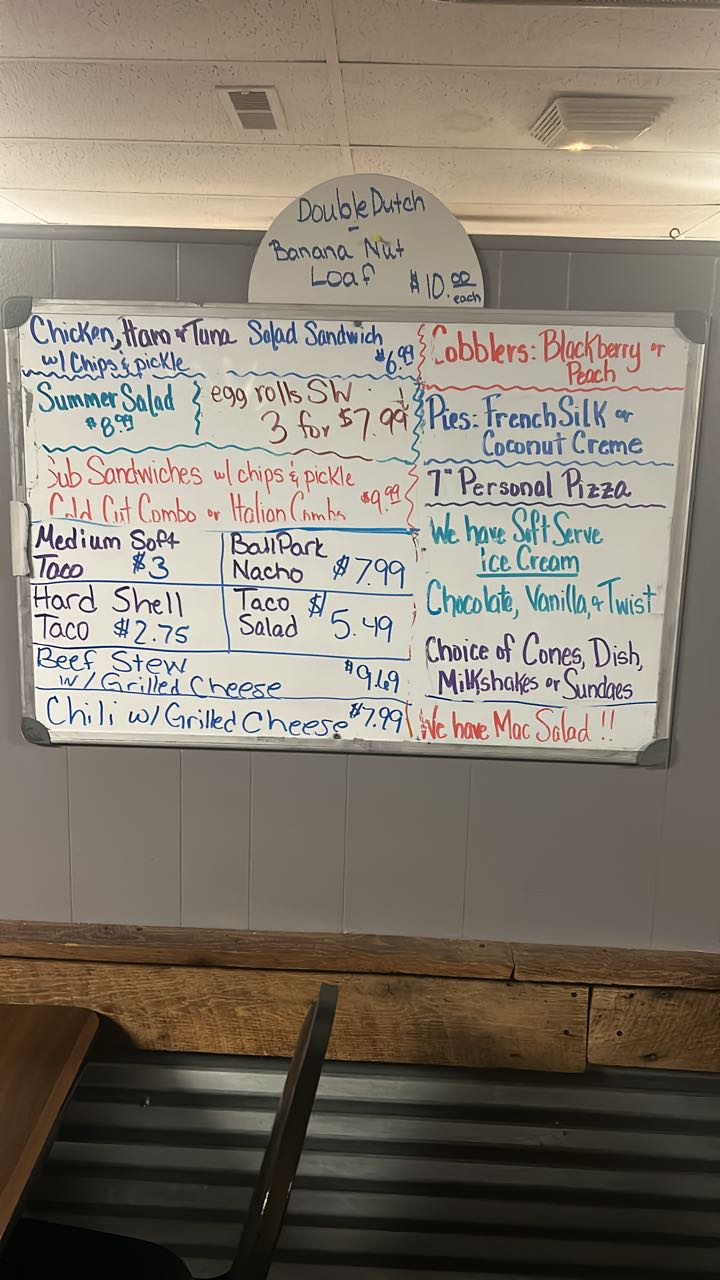 Double Dutch
-
Banana Nut
Loaf $10.00 each
Chicken, Ham or Tuna Salad Sandwich
w/ Chips & pickle $6.99
Summer Salad
$8.99
egg rolls SW
3 for $7.99
Sub Sandwiches w/ chips & pickle
Cold Cut Combo or Italian Combo $9.99
Medium Soft
Taco $3
BallPark
Nacho $7.99
Hard Shell
Taco $2.75
Taco
Salad $5.49
Beef Stew
w/ Grilled Cheese $9.69
Chili w/ Grilled Cheese $7.99
Cobblers: Blackberry or
Peach
Pies: French Silk or
Coconut Creme
7" Personal Pizza
We have Soft Serve
ice Cream
Chocolate, Vanilla, & Twist
Choice of Cones, Dish,
Milkshakes or Sundaes
We have Mac Salad !!